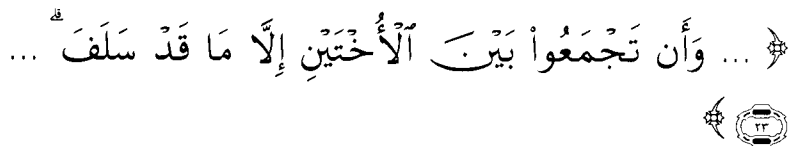 ﴿ ... وَأَن تَجْمَعُوا۟ بَيْنَ ٱلْأُخْتَيْنِ إِلَّا مَا قَدْ سَلَفَ ۗ ...
٢٣ ﴾